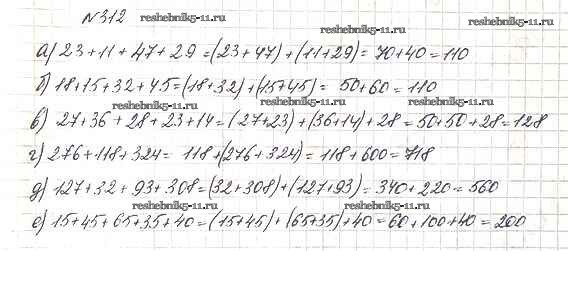 №312
reshebnik5-11.ru
reshebnik5-11.ru
reshebnik5-11.ru
а) 23+11+47+29=(23+47)+(11+29)=70+40=110
reshebnik5-11.ru
б) 18+15+32+45=(18+32)+(15+45)= 50+60=110
reshebnik5-11.ru reshebnik5-11.ru
в) 27+36+28+23+14=(27+23)+(36+14)+28=50+50+28=128
г) 276+118+324= 118+(276+324)=118+600=718
reshebnik5-11.ru
д) 127+32+93+308=(32+308)+(127+93)=340+220=560
reshebnik5-11.ru reshebnik5-11.ru
е) 15+45+65+35+40=(15+45)+(65+35)+40=60+100+40=200
reshebnik5-11.ru